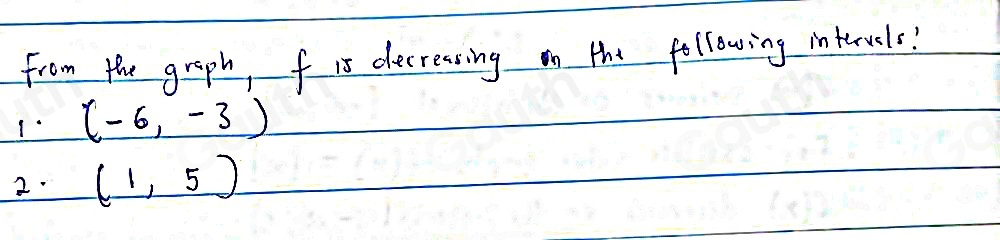 From the graph, f is decreasing on the following intervals:
1. (-6, -3)
2. (1, 5)